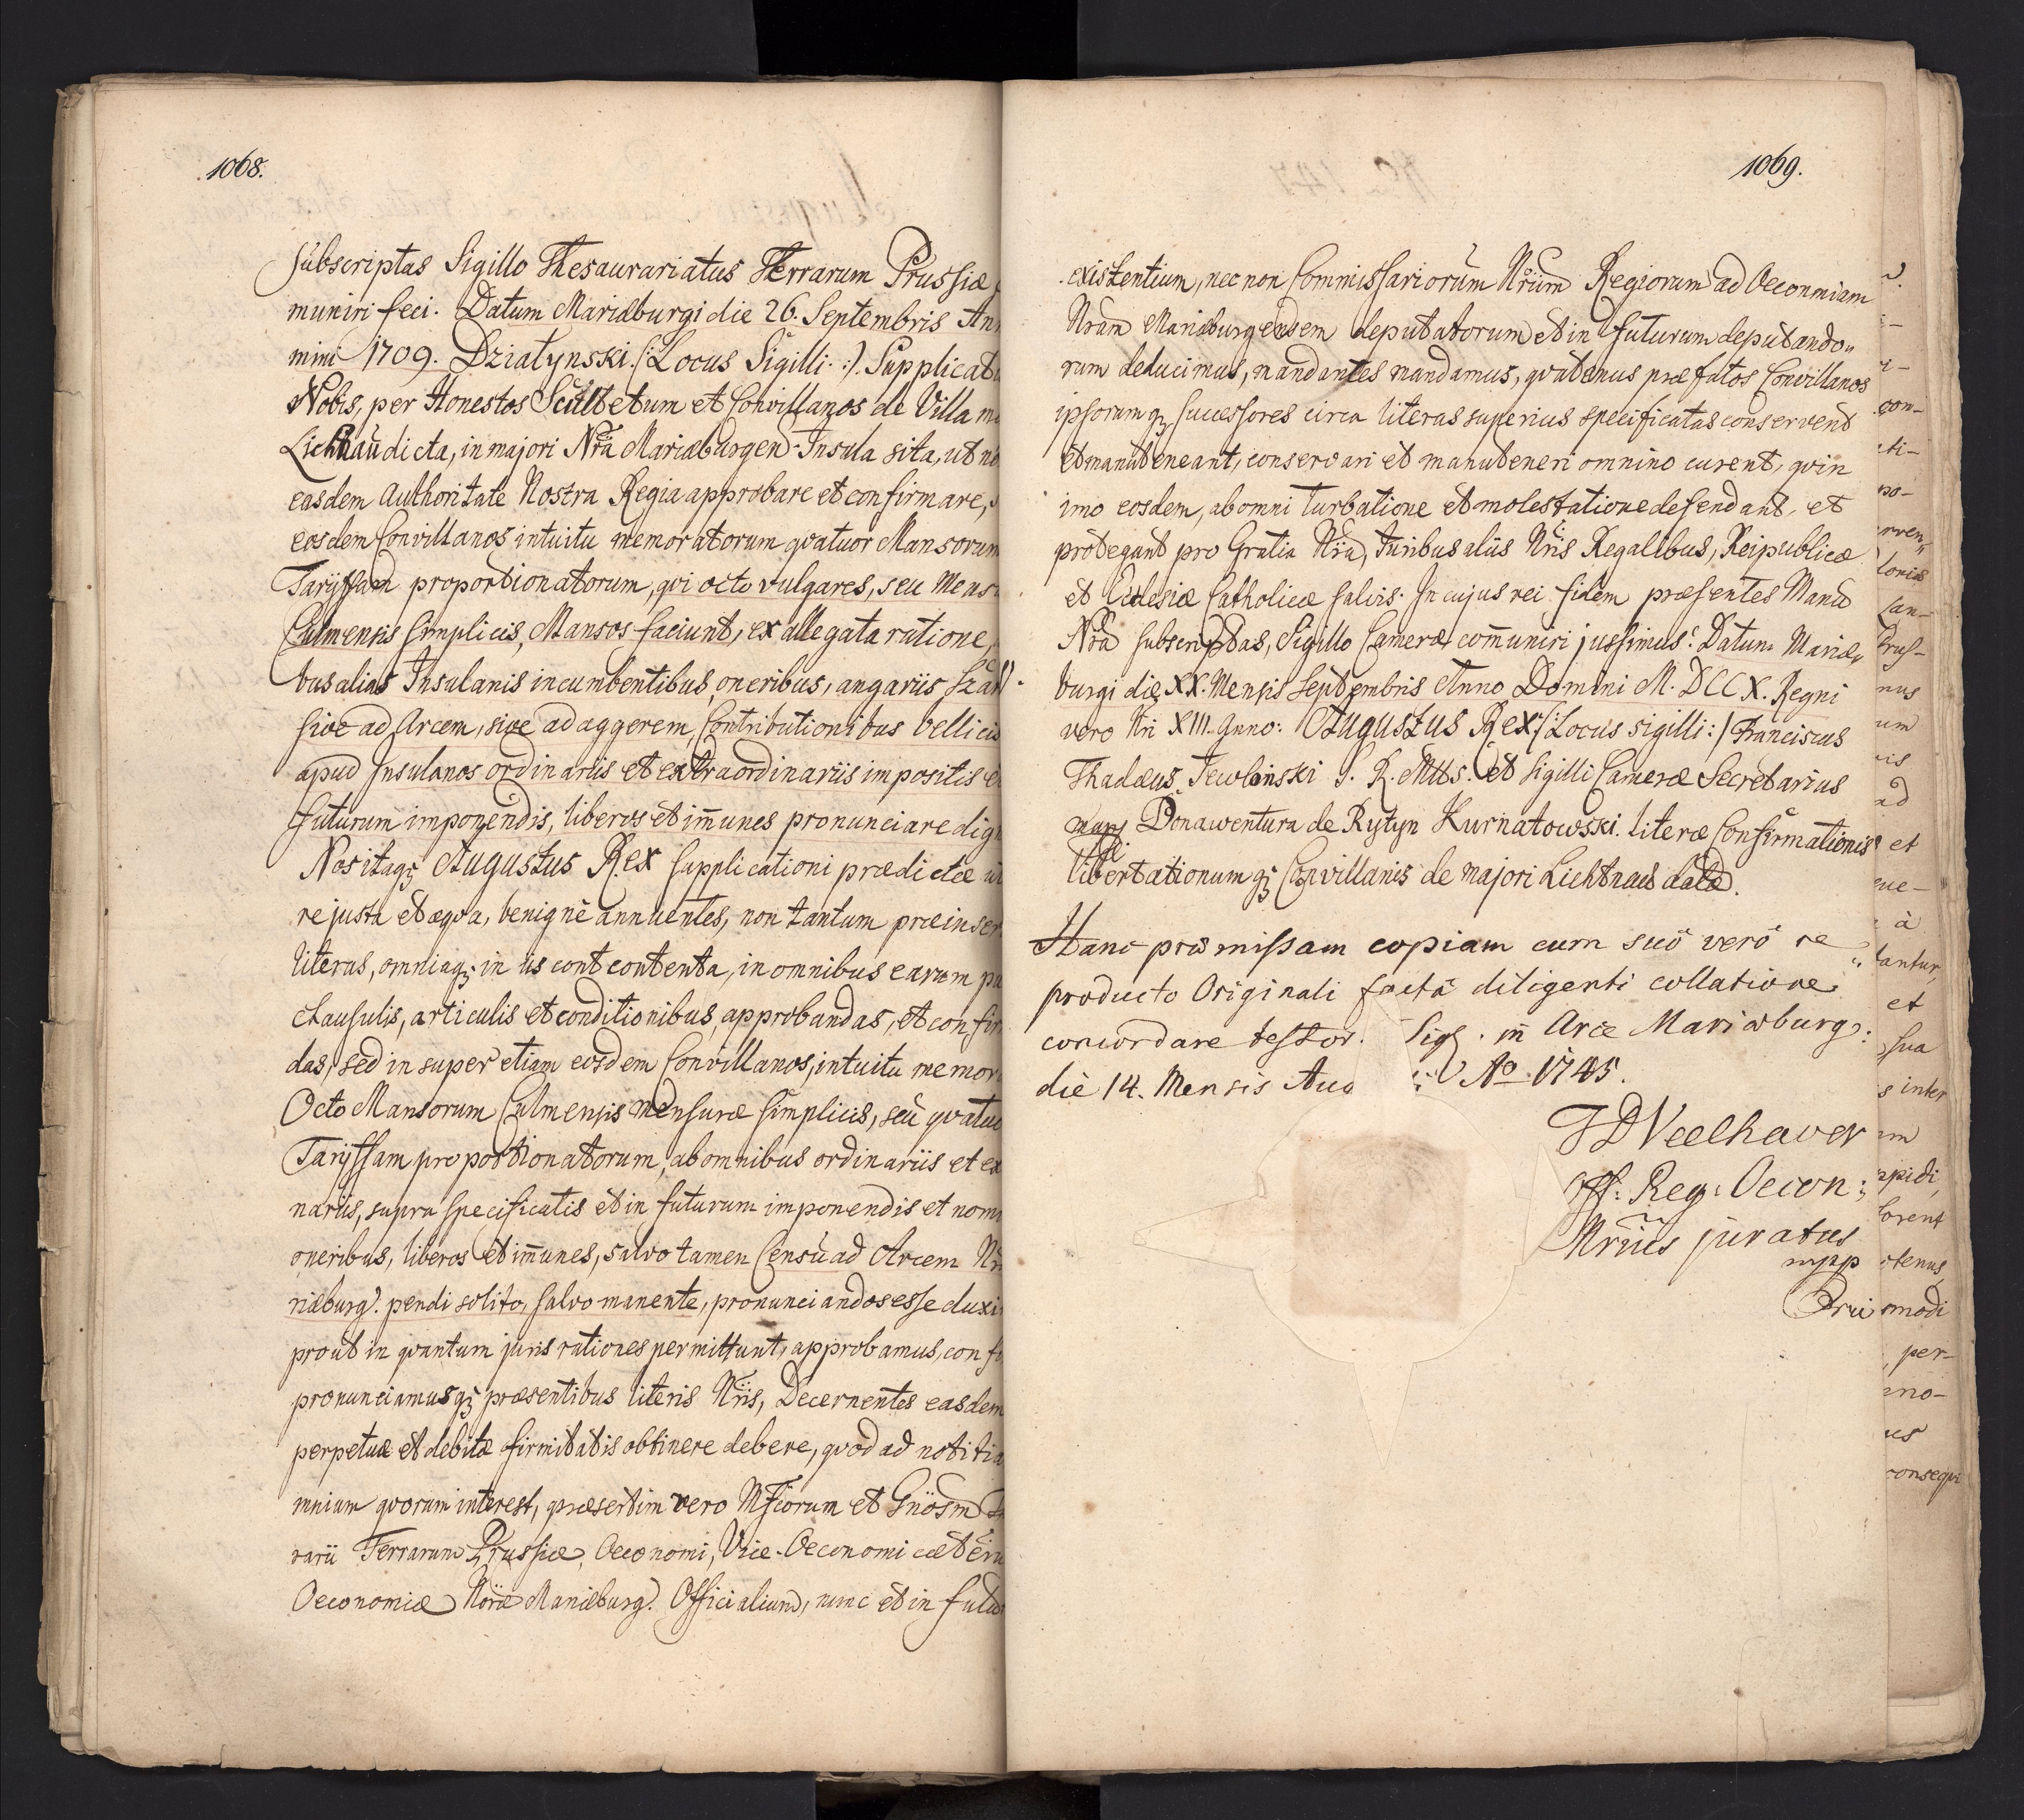 1068.
Subscriptas Sigillo Thesaurariatus Terrarum Prussiæ
muniri feci. Datum Mariæburgi die 26. Septembris An
mini 1709. Dziatynski. /: Locus Sigilli. :/. Supplicatu
Nobis, per Honestos Scultetum et Convillanos de Villa ma
Lichnau dicta, in majori Nrã Mariæburgen. Insula sita, ut no
easdem Authoritate Nostra Regia approbare et confirmare,
eosdem Convillanos intuitu memoratorum qvatuor Mansorum
Taryffam proportionatorum, qvi octo vulgares, seu Mens
Culmensis simplicis, Mansos faciunt, ex allegata ratione,
bus alias Insulanis incumbentibus oneribus, angariis Szar
sive ad Arcem, sive ad aggerem, Contributionibus bellicis
apud Insulanos ordinariis et extraordinariis impositis e
futurum imponendis, liberos et im̃unes pronunciare dig
Nos itaqꝫ Augustus Rex supplicationi prædictæ ut
re justa et æqva, benignè annuentes, non tantum præinser
literas, omniaqꝫ in iis cont contenta, in omnibus earum pu
clausulis, articulis et conditionibus, approbandas, et confir
das, sed insuper etiam eosdem Convillanos, intuitu memor
Octo Mansorum Culmensis mensuræ simplicis, seu qvatuo
Taryffam proportionatorum, ab omnibus ordinariis et ex
nariis, supra specificatis et in futurum imponendis et nomi
oneribus, liberos et im̃unes, salvo tamen Censu ad Arcem Nr
riæburg. pendi solito, salvo manente, pronunciandos esse duxi
prout in qvantum juris rationes permittunt, approbamus, confi
pronunciamusqꝫ præsentibus literis Nr̃is, Decernentes easdem
perpetuæ et debitæ firmitatis obtinere debere, qvod ad notitia
mnium qvorum interest, præsertim vero Mfcorum et Gñosm
rarii Terrarum Prussiæ, Oeconomi, Vice-Oeconomi cæteru
Oeconomiæ Nõræ Mariæburg. Officialium, nunc et in futu
1069.
existentium, nec non Commissariorum Nr̃um Regiorum ad Oeconmiam
Nram Mariæburgensem deputatorum et in futurum deputando„
rum deducimus, mandantes mandamus, qvatenus præfatos Convillanos
ipsorumqꝫ successores circa literas superius specificatas conservent
et manuteneant, conservari et manuteneri omnino curent, qvin
imo eosdem, ab omni turbatione et molestatione defendant, et
protegant pro Gratia Nr̃a, Juribus aliis Nr̃is Regalibus, Reipublicæ
et Ecclesiæ Catholicæ salvis. In cujus rei fidem præsentes Manu
Nrã subscriptas, Sigillo Cameræ com̃uniri jussimus. Datum Mariæ„
burgi die XX. Mensis Septembris Anno Domini M. DCC X. Regni
vero Nri XIII. Anno: Augustus Rex /: Locus sigilli :/ Franciscus
Thadæus Jewlinski S. R. Mtts. et Sigilli Cameræ Secretarius
mpp Bonawentura de Rytyn Kurnatowski. literæ Confirmationis
libertationumqꝫ Convillanis de majori Lichtnau datæ.
Hanc præmissam copiam cum suô verô re„
producto Originali factâ diligenti collatione
concordare testor. Sigl. in Arce Mariæburg:
die 14. Mensis Aug Aô 1745.
Off: Reg: Oecon:
Mriis juratus
mpp
Pri